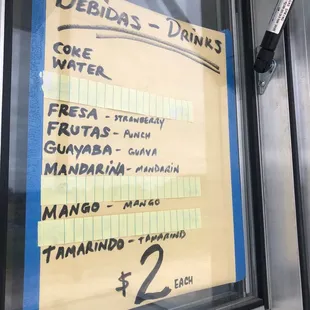 BEBIDAS - DRINKS
COKE
WATER
FRESA - STRAWBERRY
FRUTAS - PUNCH
GUAYABA - GUAVA
MANDARINA - MANDARIN
MANGO - MANGO
TAMARINDO - TAMARIND
$2 EACH